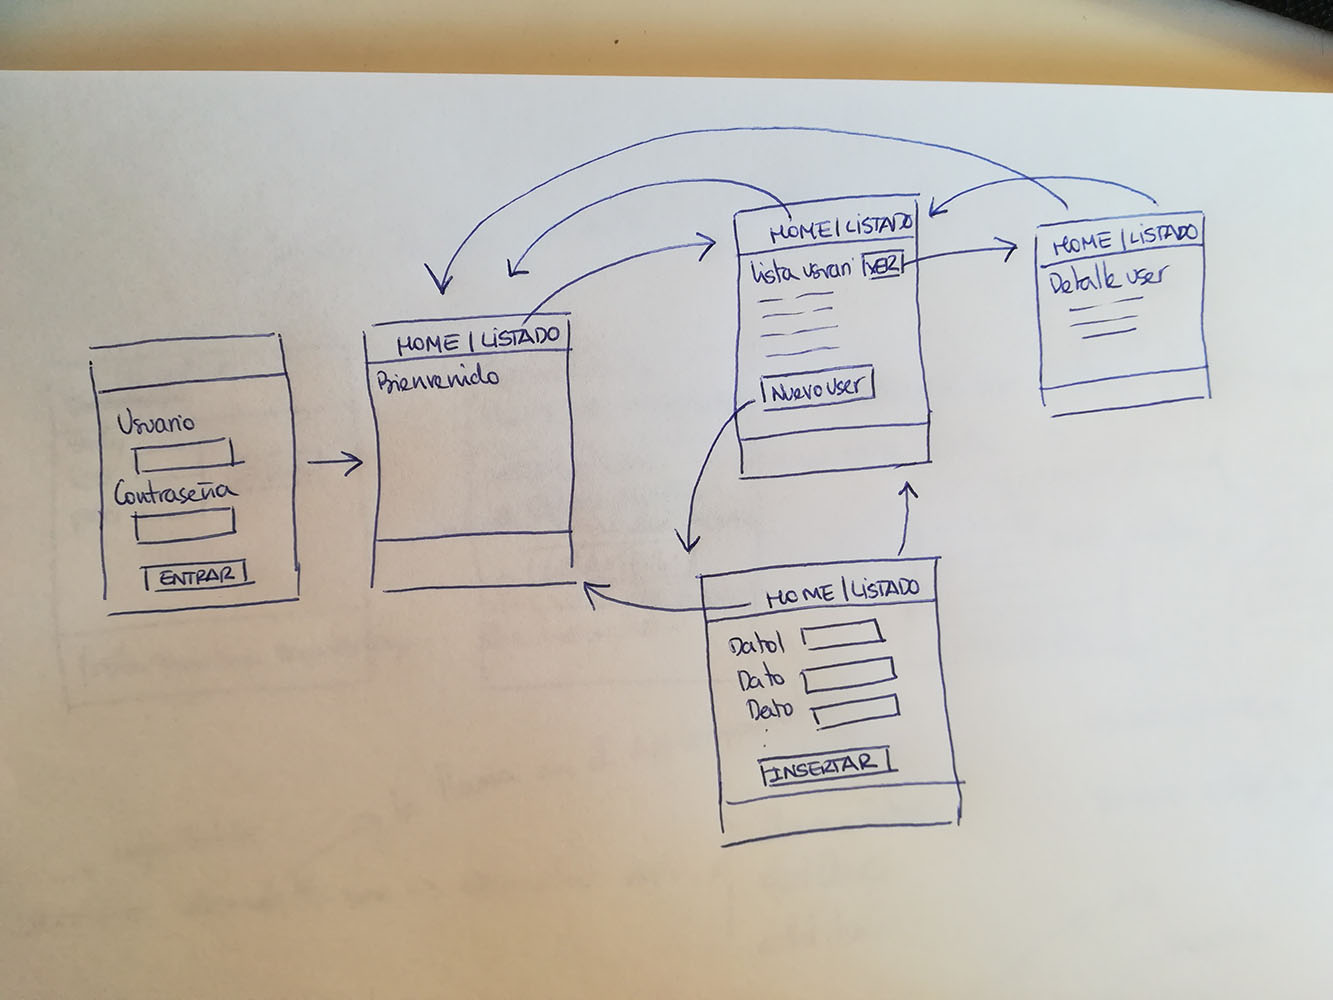 Usuario
Contraseña
ENTRAR
HOME | LISTADO
Bienvenido
HOME | LISTADO
Lista usuari VER
Nuevo user
HOME | LISTADO
Detalle user
HOME | LISTADO
Dato1
Dato
Dato
INSERTAR